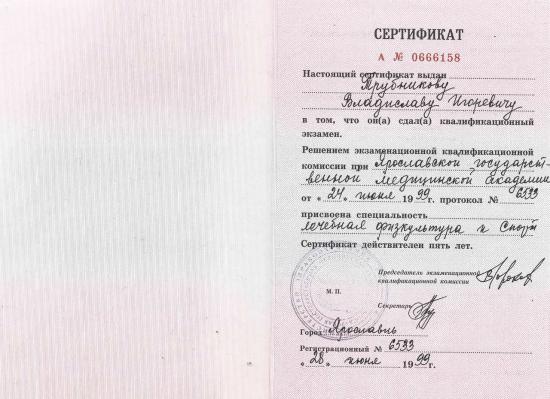 СЕРТИФИКАТ
А № 0666158
Настоящий сертификат выдан
Трубникову
Владиславу Игоревичу
в том, что он(а) сдал(а) квалификационный
экзамен.
Решением экзаменационной квалификационной
комиссии при Ярославской государст-
венной медицинской академии
от « 24 » июня 19 99 г. протокол № 6533
присвоена специальность
лечебная физкультура и спорт
Сертификат действителен пять лет.
Председатель экзаменационной
квалификационной комиссии
М. П.
Секретарь
Город Ярославль
Регистрационный № 6533
« 28 » июня 19 99 г.